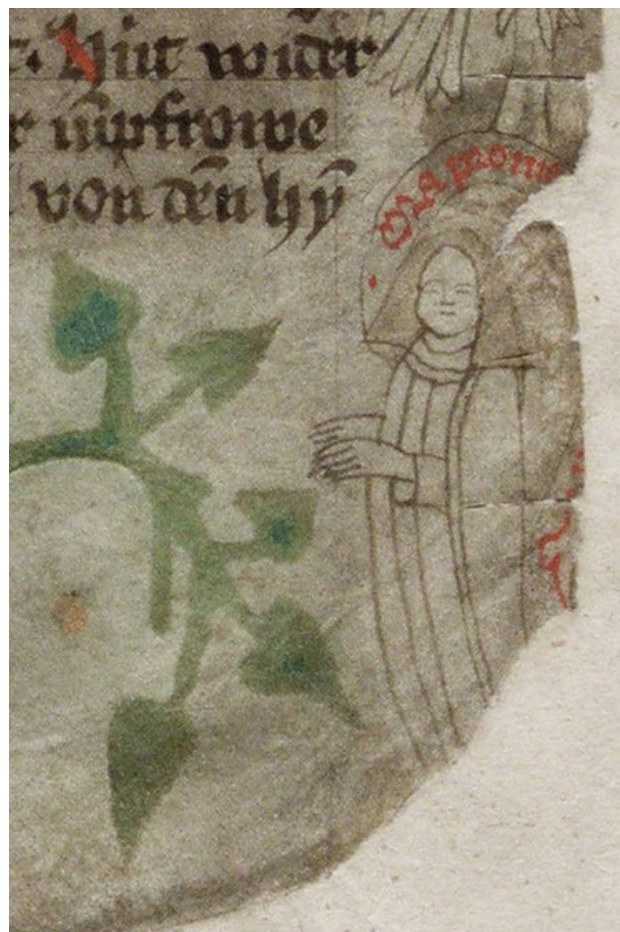 Hut wider
r iūpfrowe
von dēn hÿ
Ora pro me